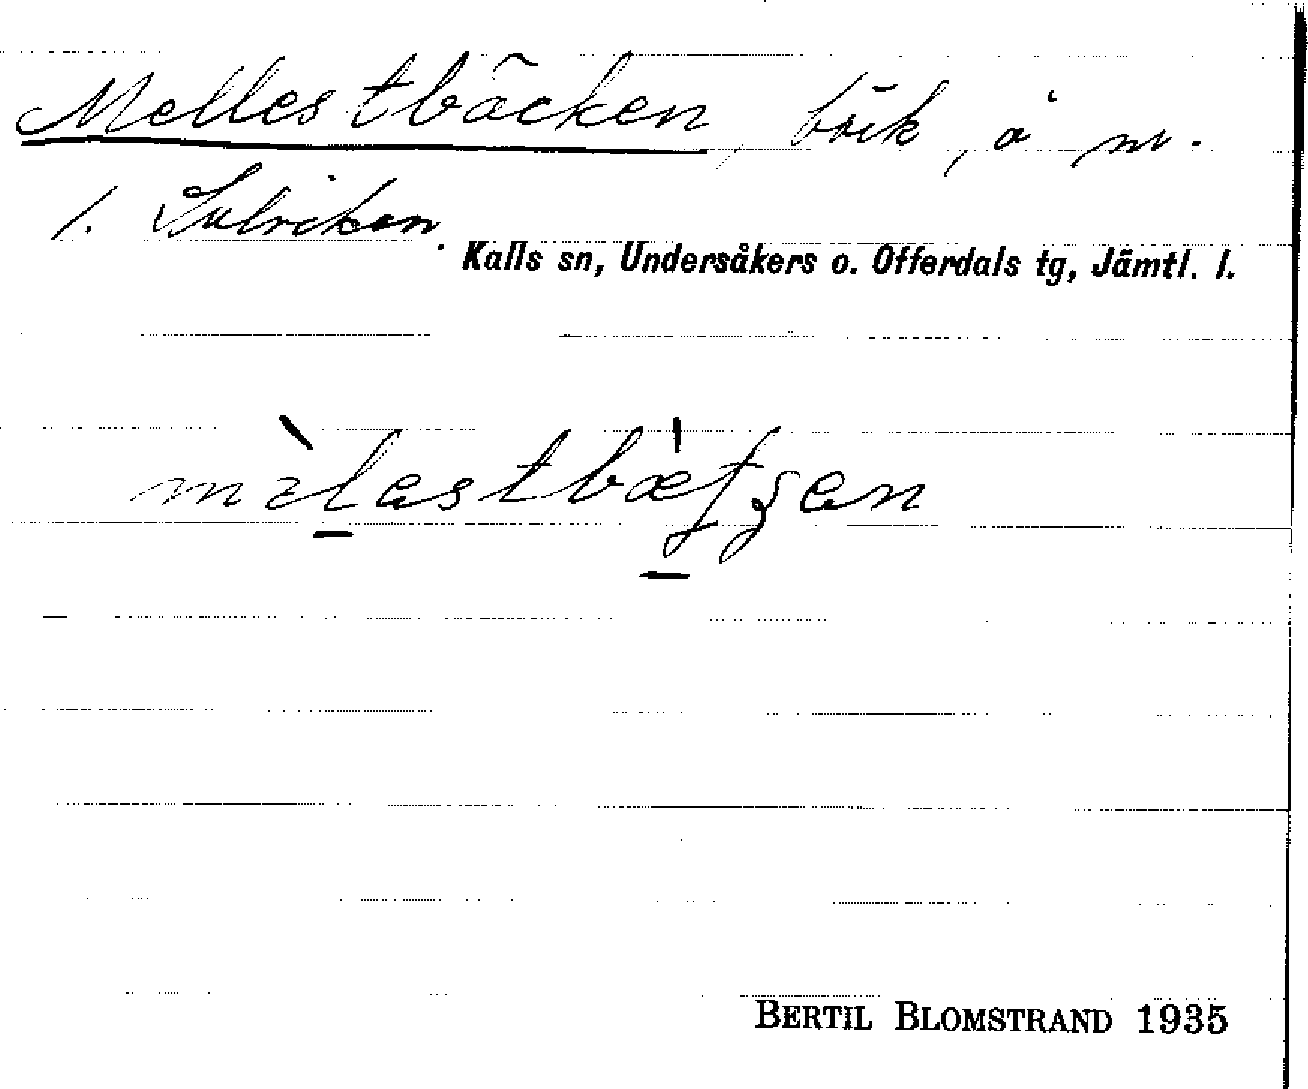 Mellestbäcken, bäck, å nv.
l. Sulviken.
Kalls sn, Undersåkers o. Offerdals tg, Jämtl. l.
BERTIL BLOMSTRAND 1935